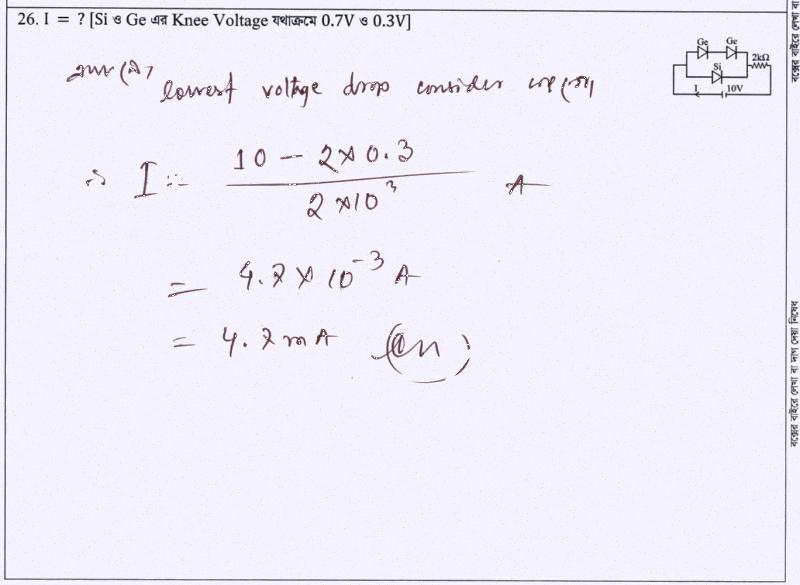 26. I = ? [Si ও Ge এর Knee Voltage যথাক্রমে 0.7V ও 0.3V]
Ge Ge
Si
2kΩ
I 10V
lowest voltage drop consider
∴ I = 10 - 2×0.3 / 2×10³ A
= 4.7×10⁻³ A
= 4.7mA (Ans)
বক্সের বাইরে লেখা বা দাগ দেয়া নিষেধ
বক্সের বাইরে লেখা বা